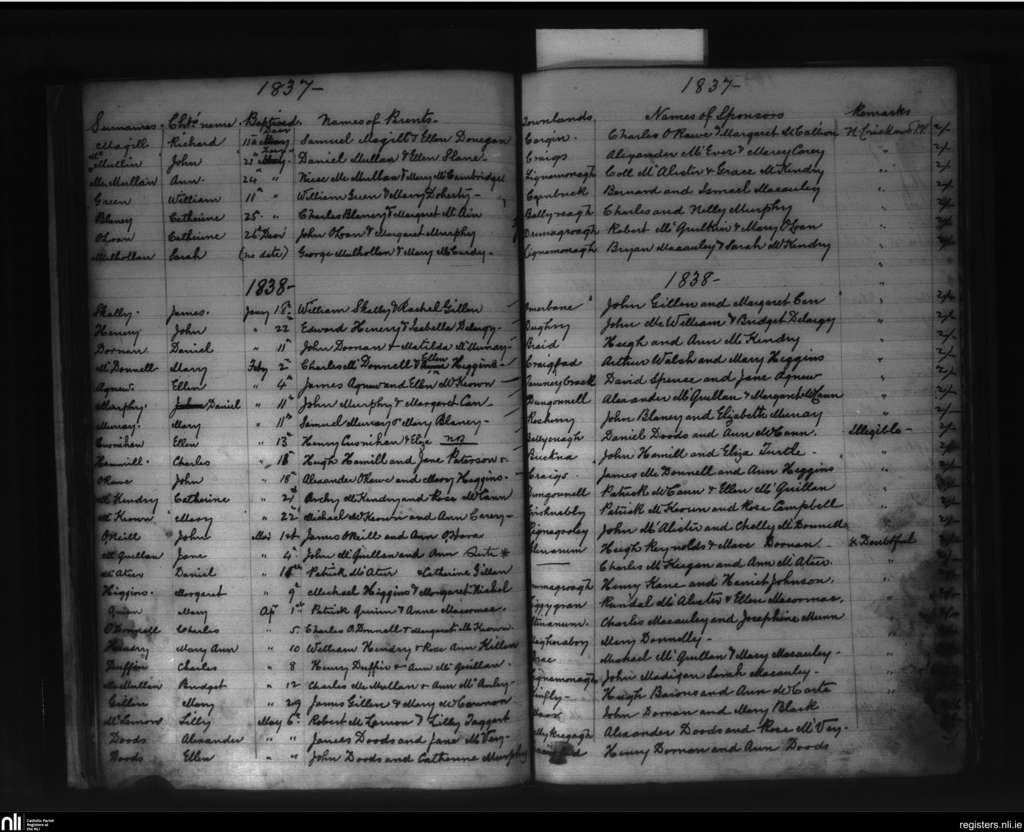 1837-
Surnames. Chtn name. Baptised. Names of Parents.
Magill Richard 11th Samuel Magill & Ellen Donegan
Mc Mullin John 21st Daniel Mullan & Ellen Slane
Mc Mullan Ann. 24th " Neese Mc Mullan & Mary Mc Cambridge
Green William 11th " William Green & Mary Doherty -
Blaney Catherine 25 - " Charles Blaney & Margaret Mc Ain
O'Loan Catherine 26th John O'Loan & Margaret Murphy
Mulhollan Sarah (no date) George Mulhollan & Mary Mc Curdy -
1838-
Skelly. James. Jany 18th William Skelly & Rachel Gillen
Henery John " 22 Edward Henery & Isabella Delargy -
Doonan Daniel " 11th John Doonan & Matilda Mc Murray -
Mc Donnell Mary Feby 2nd Charles Mc Donnell & Ellen Higgins -
Agnew. Ellen " 4th James Agnew and Ellen Mc Keown
Murphy. John Daniel " 11th John Murphy & Margaret Can -
Murray. Mary " 11th Samuel Murray & Mary Blaney -
Cusnihan Ellen " 13th Henry Cusnihan & Eliza no
Hammill. Charles " 16 Hugh Hamill and Jane Paterson
O'Kane John " 18th Alexander O'Kane and Mary Higgins -
Mc Kendry Catherine " Archy Mc Kendry and Rose Mc Cann
Mc Keown Mary " 22 Michael Mc Keown and Ann Carey -
O'Neill John 1st James O'Neill and Ann O'Hara
Mc Quillan Jane " 4th John Mc Quillan and Ann *
Mc Ateer Daniel " 16th Patrick Mc Ateer & Catherine Gillan
Higgins. Margaret " 9th Michael Higgins & Margaret Nichol
Quinn Mary Ap 1st Patrick Quinn & Anne Macormac.
O'Donnell Charles " 5. Charles O'Donnell & Margaret Mc Keown.
Hendry Mary Ann " 10 William Hendry & Rose Ann Killen
Duffin Charles " 8 Henry Duffin & Ann Mc Quillan -
Mc Mullan Bridget " 12 Charles Mc Mullan & Ann Mc Auley -
Gillen Mary " 29 James Gillen & Mary Mc Cannon
Mc Lernon Lilly May 6th Robert Mc Lernon & Lilly Taggert
Doods Alexander " " James Doods and Jane Mc Vey -
Doods Ellen " " John Doods and Catherine Murphy
1837-
Townlands. Names of Sponsors Remarks
Cargin. Charles O'Kane & Margaret Mc Callion 2/-
Craigs Alexander Mc Ever & Mary Carey " 2/-
Lignamonagh Coll Mc Alister & Grace Mc Kendry " 2/-
Carnbuck Bernard and Ismael Macauley " 2/-
Ballyreagh Charles and Nelly Murphy " 2/-
Dunnagroagh Robert Mc Quilkin & Mary O'Loan " 2/-
Lignamonagh Bryan Macauley & Sarah Mc Kendry " 2/-
1838-
John Gillen and Margaret Can " 2/-
John Mc William & Bridget Delargy " 2/-
Braid Hugh and Ann Mc Kendry " 2/-
Craigfad Arthur Walsh and Mary Higgins " 2/-
David Spence and Jane Agnew " 2/-
Dungonnell Alexander Mc Quillan & Margaret Mc Cann " 2/-
John Blaney and Elizabeth Murray " 2/-
Daniel Doods and Ann Mc Cann. Illegible - 2/-
Buckna John Hamill and Eliza Turtle. " 2/-
Craigs James Mc Donnell and Ann Higgins " 2/-
Dungonnell Patrick Mc Cann & Ellen Mc Quillan " 2/-
Patrick Mc Keown and Rose Campbell " 2/-
John Mc Alister and Chelly Mc Donnell " 2/-
Hugh Reynolds & Mave Doonan * Doubtful 2/-
Charles Mc Keagan and Ann Mc Ateer. "
Henry Kane and Harriet Johnson. "
Randal Mc Alister & Ellen Macormac. "
Charles Macauley and Josephine Munn "
Mary Donnelly - "
Michael Mc Quillan & Mary Macauley - "
Lignamonagh John Madigan Sarah Macauley - "
Hugh Barons and Ann Mc Carte "
John Doonan and Mary Black
Alexander Doods and Rose Mc Vey -
Henry Doonan and Ann Doods
nli Catholic Parish
Registers at
the NLI
registers.nli.ie